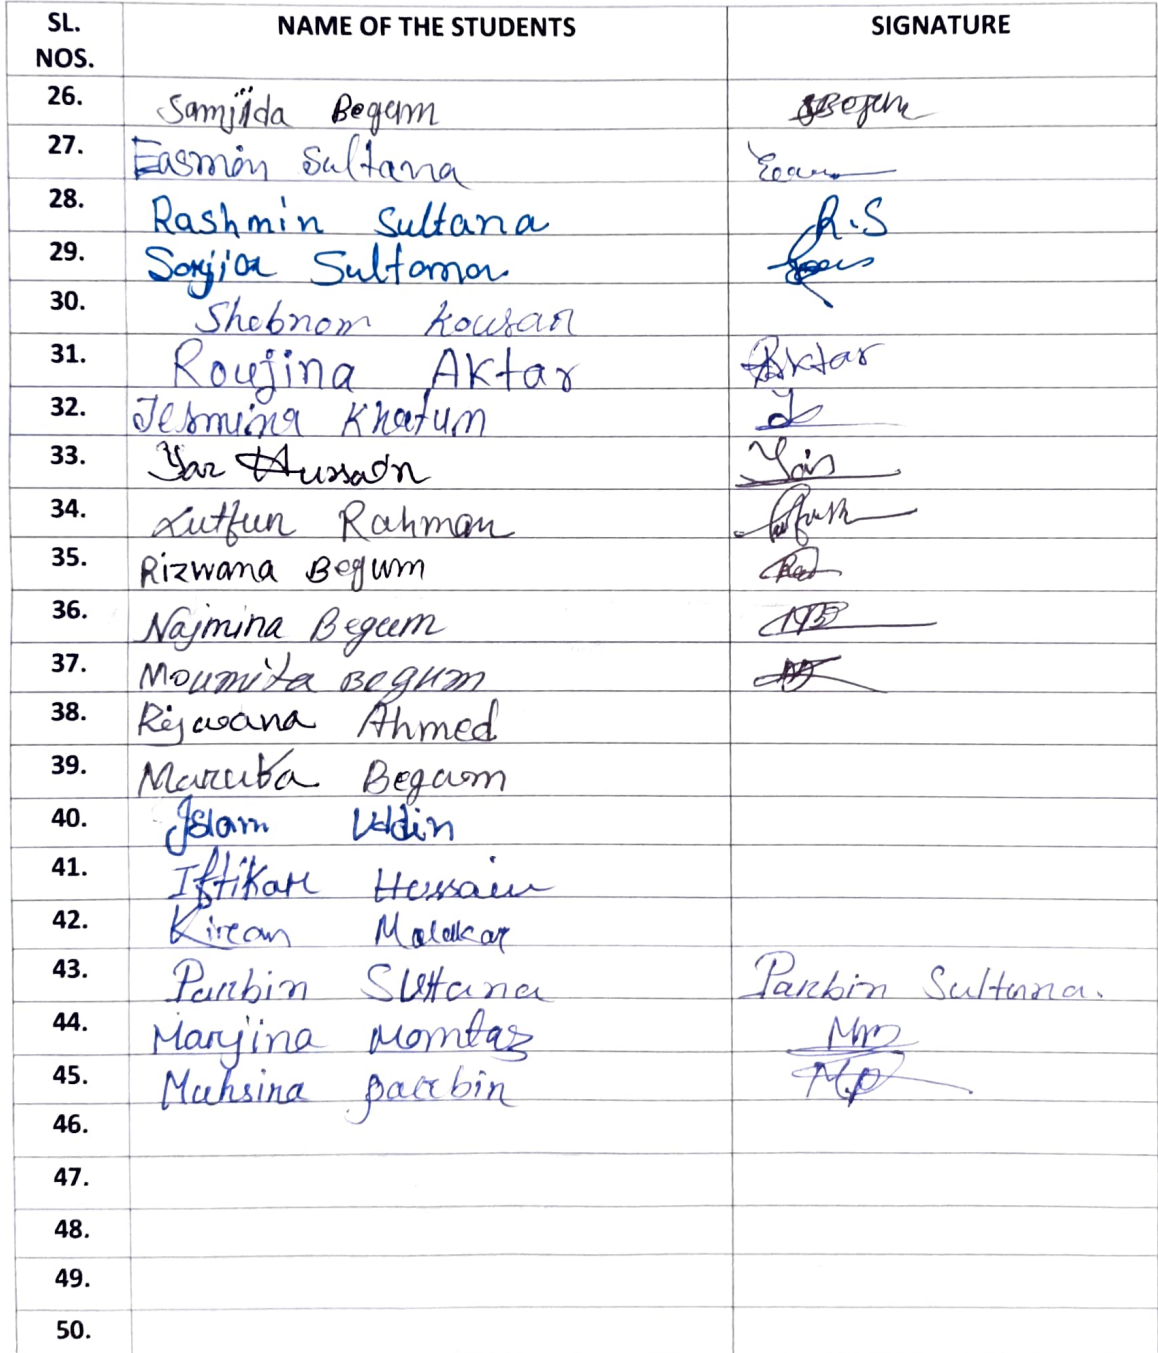 SL. NOS. NAME OF THE STUDENTS SIGNATURE
26. Samjida Begum SBegum
27. Easmin Sultana
28. Rashmin Sultana R.S
29. Sonjida Sultana
30. Shebnom Kousar
31. Roujina Aktar RAktar
32. Jesmina Khatun
33. Yar Hussain
34. Lutfun Rahman
35. Rizwana Begum
36. Najmina Begum
37. Moumita Begum
38. Rejwana Ahmed
39. Maruba Begum
40. Islam Uddin
41. Iftikar Hussain
42. Kiran Malakar
43. Parbin Sultana Parbin Sultana.
44. Marjina Momtaz Mm
45. Muhsina parbin M.p
46.
47.
48.
49.
50.